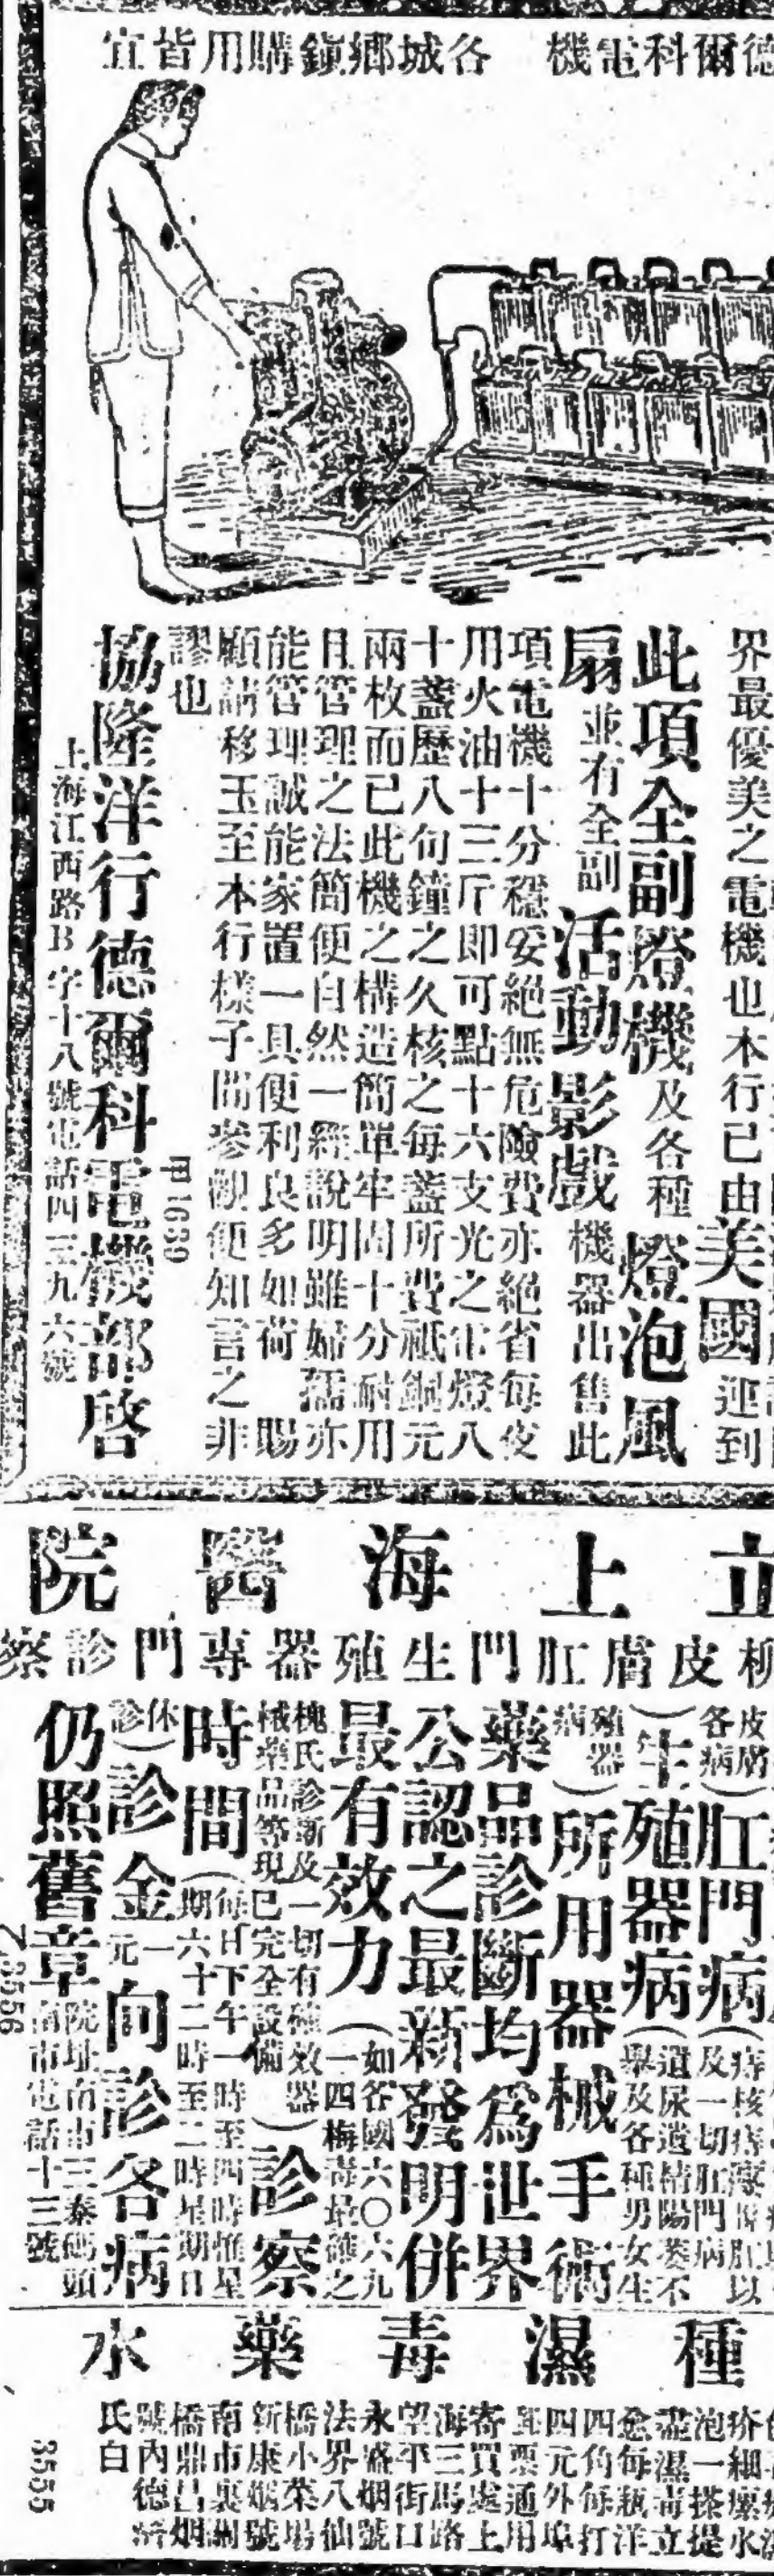 德爾科電機　各城鄉鎮購用皆宜
界最優美之電機也本行已由美國運到
此項全副燈機及各種燈泡風
扇並有全副活動影戲機器出售此
項電機十分穩妥絕無危險費亦絕省每夜
用火油十三斤即可點十六支光之電燈八
十盞歷八句鐘之久核之每盞所費祇銅元
兩枚而已此機之構造簡單牢固十分耐用
且管理之法簡便自然一經說明雖婦孺亦
能管理誠能家置一具便利良多如荷　賜
顧請移玉至本行樣子間參觀便知言之非
謬也
甲1639
協隆洋行德爾科電機部啓
上海江西路B字十八號電話四三九六號
立上海醫院
柳皮膚肛門生殖器專門診察
皮膚
各病）肛門病（痔核痔瘻脫肛以
及一切肛門病
）生殖器病（遺尿遺精陽萎不
舉及各種男女生
殖器
病）所用器械手術
藥品診斷均爲世界
公認之最新發明併
最有效力（如各國六〇六九
一四梅毒最確之
槐氏診斷及一切有強效器
械藥品等現已完全設備）診察
時間（每日下午一時至四時惟星
期六十二時至二時星期日
休
診）診金一
元向診各病
仍照舊章院址南市三泰碼頭
南市電話十三號
Z3556
種濕毒藥水
疥細壞水
泡一搽提
盡濕毒立
愈每瓶洋
四角每打
四元外埠
郵票通用
寄買處上
海三馬路
望平街口
永盛烟號
法界八仙
橋小菜場
新康烟號
南市裏
橋鼎昌烟
號內德
氏白
3555